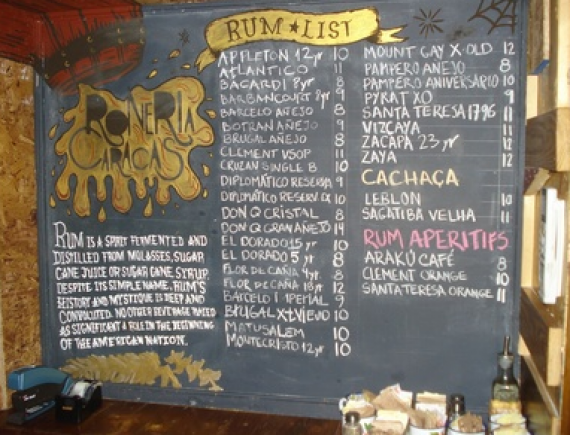 RUM ★ LIST
RONERIA
CARACAS
RUM IS A SPIRIT FERMENTED AND
DISTILLED FROM MOLASSES, SUGAR
CANE JUICE OR SUGAR CANE SYRUP.
DESPITE ITS SIMPLE NAME, RUM'S
HISTORY AND MYSTIQUE IS DEEP AND
CONVOLUTED. NO OTHER BEVERAGE PLAYED
AS SIGNIFICANT A ROLE IN THE BEGINNING
OF THE AMERICAN NATION.
APPLETON 12yr 10
ATLANTICO 11
BACARDI 8yr 8
BARBANCOURT 8yr 9
BARCELO AÑEJO 8
BOTRAN AÑEJO 9
BRUGAL AÑEJO 8
CLEMENT VSOP 11
CRUZAN SINGLE B 10
DIPLOMÁTICO RESERVA 9
DIPLOMÁTICO RESERV EX 10
DON Q CRISTAL 8
DON Q GRAN AÑEJO 14
EL DORADO 15yr 10
EL DORADO 5yr 8
FLOR DE CAÑA 4yr 8
FLOR DE CAÑA 18yr 12
BARCELO IMPERIAL 9
BRUGAL XTVIEJO 10
MATUSALEM 10
MONTECRISTO 12yr 10
MOUNT GAY X·OLD 12
PAMPERO AÑEJO 8
PAMPERO ANIVERSARIO 10
PYRAT XO 9
SANTA TERESA 1796 11
VIZCAYA 11
ZACAPA 23yr 12
ZAYA 12
CACHAÇA
LEBLON 10
SAGATIBA VELHA 11
RUM APERITIFS
ARAKÚ CAFÉ 8
CLEMENT ORANGE 10
SANTA TERESA ORANGE 11